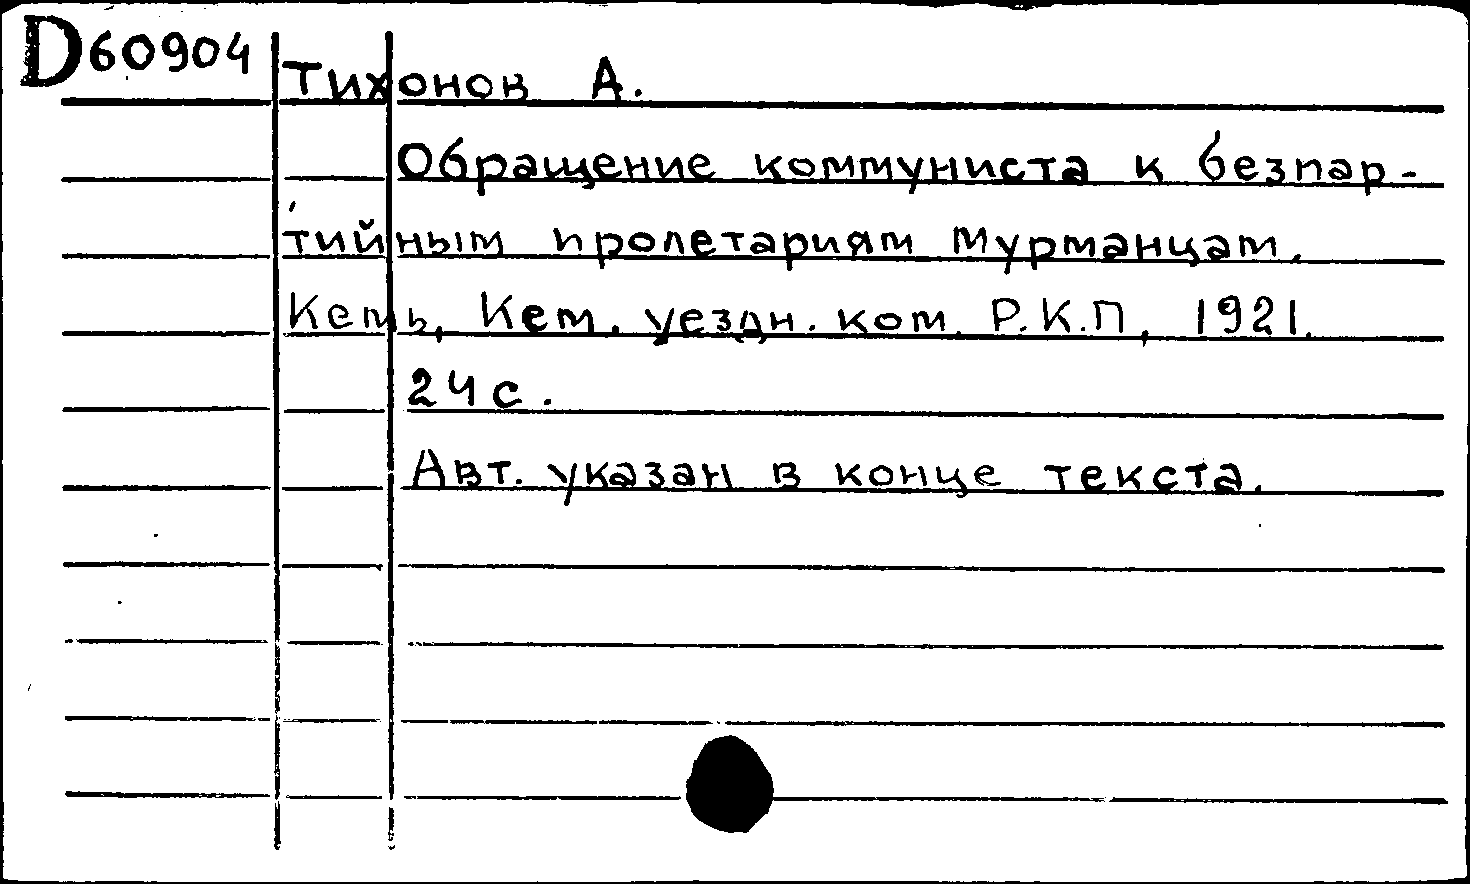 D60904
Тихонов А.
Обращение коммуниста к безпар-
тийным пролетариям Мурманцам.
Кемь, Кем. уездн. ком. Р.К.П, 1921.
24 с.
Авт. указан в конце текста.